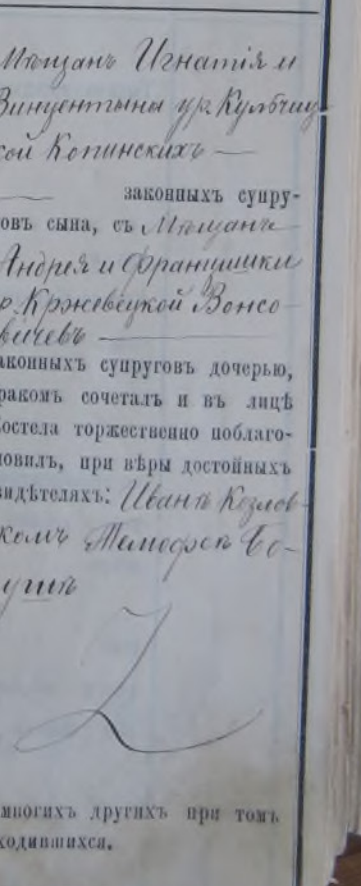 Мѣщанъ Игнатія и
Винцентины ур. Кульчиц-
кой Копинскихъ —
— законныхъ супру-
овъ сына, съ Мѣщанъ
Андрея и Францишки
р. Кржевецкой Вонсо-
вичевъ —
аконныхъ супруговъ дочерью,
ракомъ сочеталъ и въ лицѣ
остела торжественно поблаго-
ловилъ, при вѣры достойныхъ
видѣтеляхъ: Иванѣ Козлов-
комъ
многихъ другихъ при томъ
ходившихся.